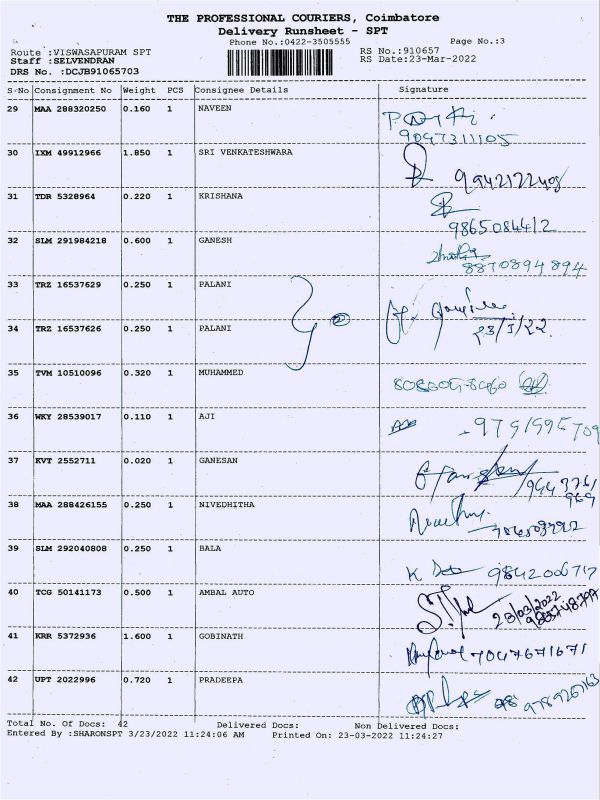 THE PROFESSIONAL COURIERS, Coimbatore
Delivery Runsheet - SPT
Phone No.:0422-3505555 Page No.:3
Route :VISWASAPURAM SPT RS No.:910657
Staff :SELVENDRAN RS Date:23-Mar-2022
DRS No. :DCJB91065703
S-No Consignment No Weight PCS Consignee Details Signature
29 MAA 288320250 0.160 1 NAVEEN
9047311105
30 IXM 49912966 1.850 1 SRI VENKATESHWARA
9942122408
31 TDR 5328964 0.220 1 KRISHANA
9865084412
32 SLM 291984218 0.600 1 GANESH
8870894894
33 TRZ 16537629 0.250 1 PALANI
34 TRZ 16537626 0.250 1 PALANI
35 TVM 10510096 0.320 1 MUHAMMED
36 WKY 28539017 0.110 1 AJI
37 KVT 2552711 0.020 1 GANESAN
38 MAA 288426155 0.250 1 NIVEDHITHA
39 SLM 292040808 0.250 1 BALA
9842006717
40 TCG 50141173 0.500 1 AMBAL AUTO
23/03/2022
41 KRR 5372936 1.600 1 GOBINATH
7047671671
42 UPT 2022996 0.720 1 PRADEEPA
Total No. Of Docs: 42 Delivered Docs: Non Delivered Docs:
Entered By :SHARONSPT 3/23/2022 11:24:06 AM Printed On: 23-03-2022 11:24:27